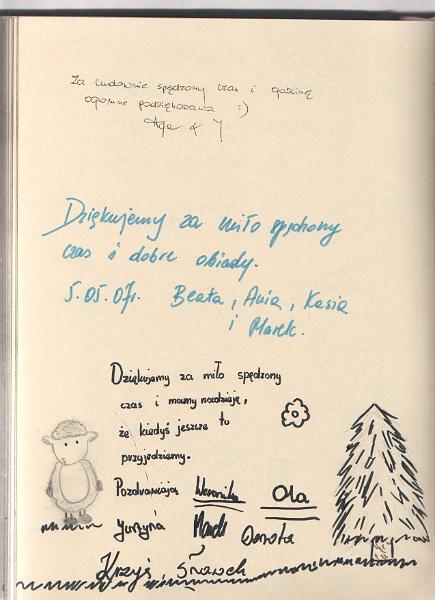 Za cudownie spędzony czas i gościnę
ogromne podziękowania :)
Dziękujemy za miło spędzony
czas i dobre obiady.
5.05.07r. Beata, Ania, Kasia
i Marek.
Dziękujemy za miło spędzony
czas i mamy nadzieję,
że kiedyś jeszcze tu
przyjedziemy.
Pozdrawiają Weronika Ola
Justyna Marek Dorota
Krzyś Sławek